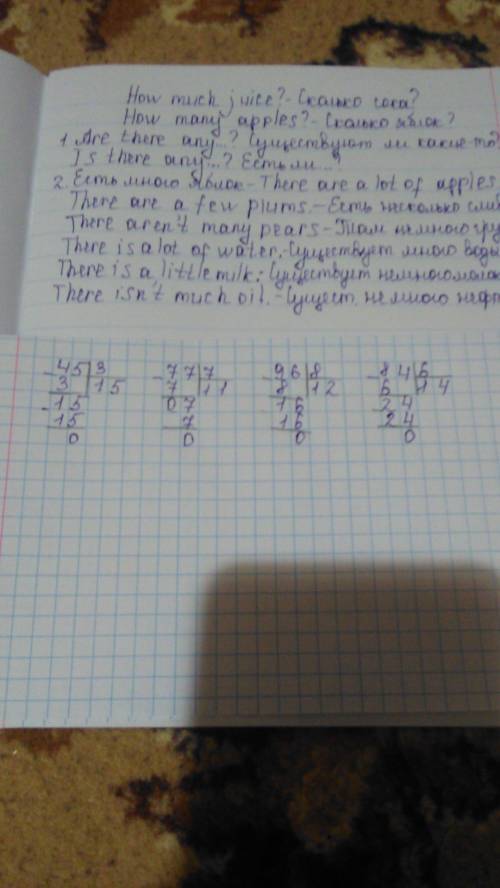 How much juice? - Сколько сока?
How many apples? - Сколько яблок?
1. Are there any...? Существуют ли какие-то
Is there any...? Есть ли...?
2. Есть много яблок - There are a lot of apples.
There are a few plums. - Есть несколько сли
There aren't many pears - Там немного гру
There is a lot of water. - Существует много воды
There is a little milk. - Существует немного молок
There isn't much oil. - Сущест. немного нефт
-45 3 -77 7 -96 8 -84 6
3 15 7 11 8 12 6 14
-15 07 -16 -24
15 7 16 24
0 0 0 0